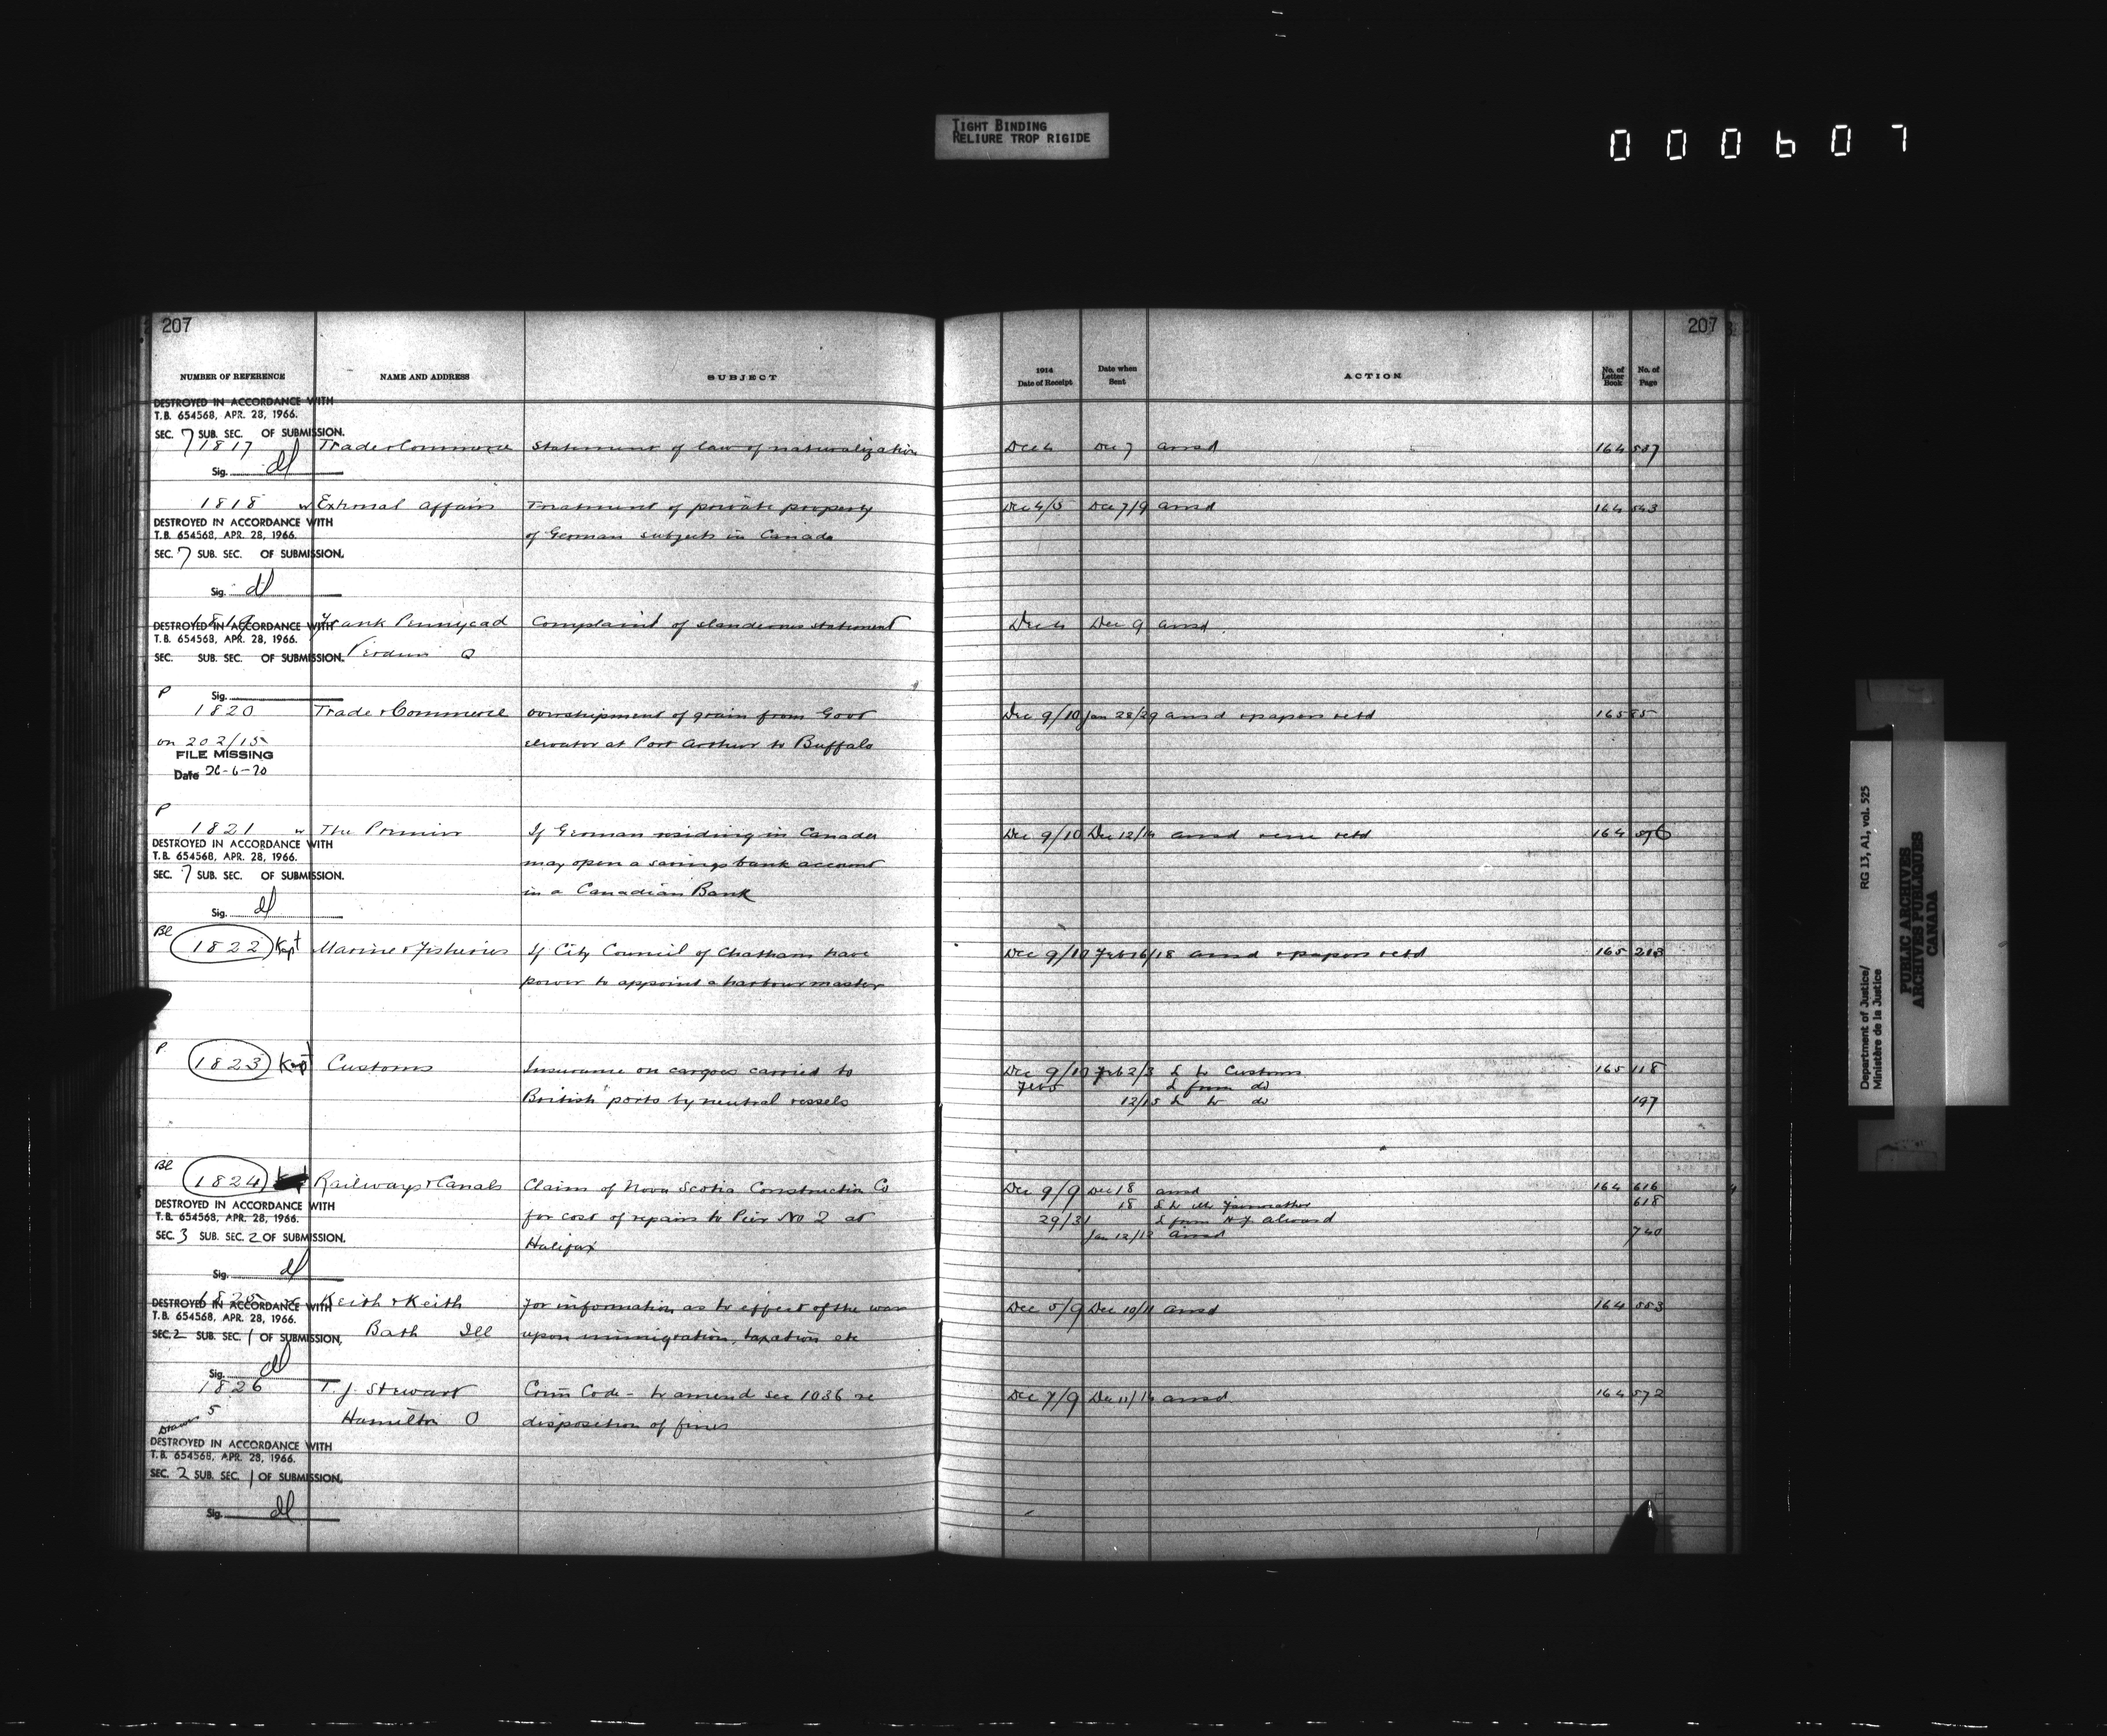 TIGHT BINDING
RELIURE TROP RIGIDE
000607
207
NUMBER OF REFERENCE NAME AND ADDRESS SUBJECT
DESTROYED IN ACCORDANCE WITH
T.B. 654568, APR. 28, 1966.
SEC. 7 SUB. SEC. OF SUBMISSION.
1817 Trade & Commerce Statement of law of naturalization
Sig. dl
1818 w External Affairs Treatment of private property
DESTROYED IN ACCORDANCE WITH
T.B. 654568, APR. 28, 1966. of German subjects in Canada
SEC. 7 SUB. SEC. OF SUBMISSION.
Sig. dl
1819 Frank Pennycad Complaint of slanderous statement
DESTROYED IN ACCORDANCE WITH
T.B. 654568, APR. 28, 1966.
SEC. SUB. SEC. OF SUBMISSION. Verdun Q
P Sig.
1820 Trade & Commerce Overshipment of grain from Govt
on 202/15 elevator at Port Arthur to Buffalo
FILE MISSING
Date 26-6-70
P
1821 w The Premier If German residing in Canada
DESTROYED IN ACCORDANCE WITH
T.B. 654568, APR. 28, 1966. may open a savings bank account
SEC. 7 SUB. SEC. OF SUBMISSION.
in a Canadian Bank
Sig. dl
Bl
1822 Kept Marine & Fisheries If City Council of Chatham have
power to appoint a harbour master
P
1823 Kept Customs Insurance on cargoes carried to
British ports by neutral vessels
Bl
1824 Railways & Canals Claim of Nova Scotia Construction Co
DESTROYED IN ACCORDANCE WITH
T.B. 654568, APR. 28, 1966. for cost of repairs to Pier No 2 at
SEC. 3 SUB. SEC. 2 OF SUBMISSION.
Halifax
Sig. dl
1825 Keith & Keith For information as to effect of the war
DESTROYED IN ACCORDANCE WITH
T.B. 654568, APR. 28, 1966.
SEC. 2 SUB. SEC. 1 OF SUBMISSION. Bath Ill upon immigration, taxation etc
Sig. dl
1826 T. J. Stewart Crim Code - to amend sec 1036 re
Drawer 5 Hamilton O disposition of fines
DESTROYED IN ACCORDANCE WITH
T.B. 654568, APR. 28, 1966.
SEC. 2 SUB. SEC. 1 OF SUBMISSION.
Sig. dl
207
1914
Date of Receipt Date when Sent ACTION No. of Letter Book No. of Page
Dec 4 Dec 7 ansd 164 537
Dec 4/5 Dec 7/9 ansd 164 543
Dec 4 Dec 9 ansd
Dec 9/10 Jan 28/29 ansd & papers retd 165 85
Dec 9/10 Dec 12/14 ansd retd 164 576
Dec 9/10 Feb 16/18 ansd & papers retd 165 213
Dec 9/10 Feb 2/3 L to Customs 165 118
Feb 5 L from do
12/15 L to do 197
Dec 9/9 Dec 18 ansd 164 616
18 L to Mr Fairweather 618
29/31 L from
Jan 12/13 ansd 740
Dec 5/9 Dec 10/11 ansd 164 553
Dec 7/9 Dec 11/14 ansd 164 572
Department of Justice/
Ministère de la Justice
RG 13, A1, vol. 525
PUBLIC ARCHIVES
ARCHIVES PUBLIQUES
CANADA